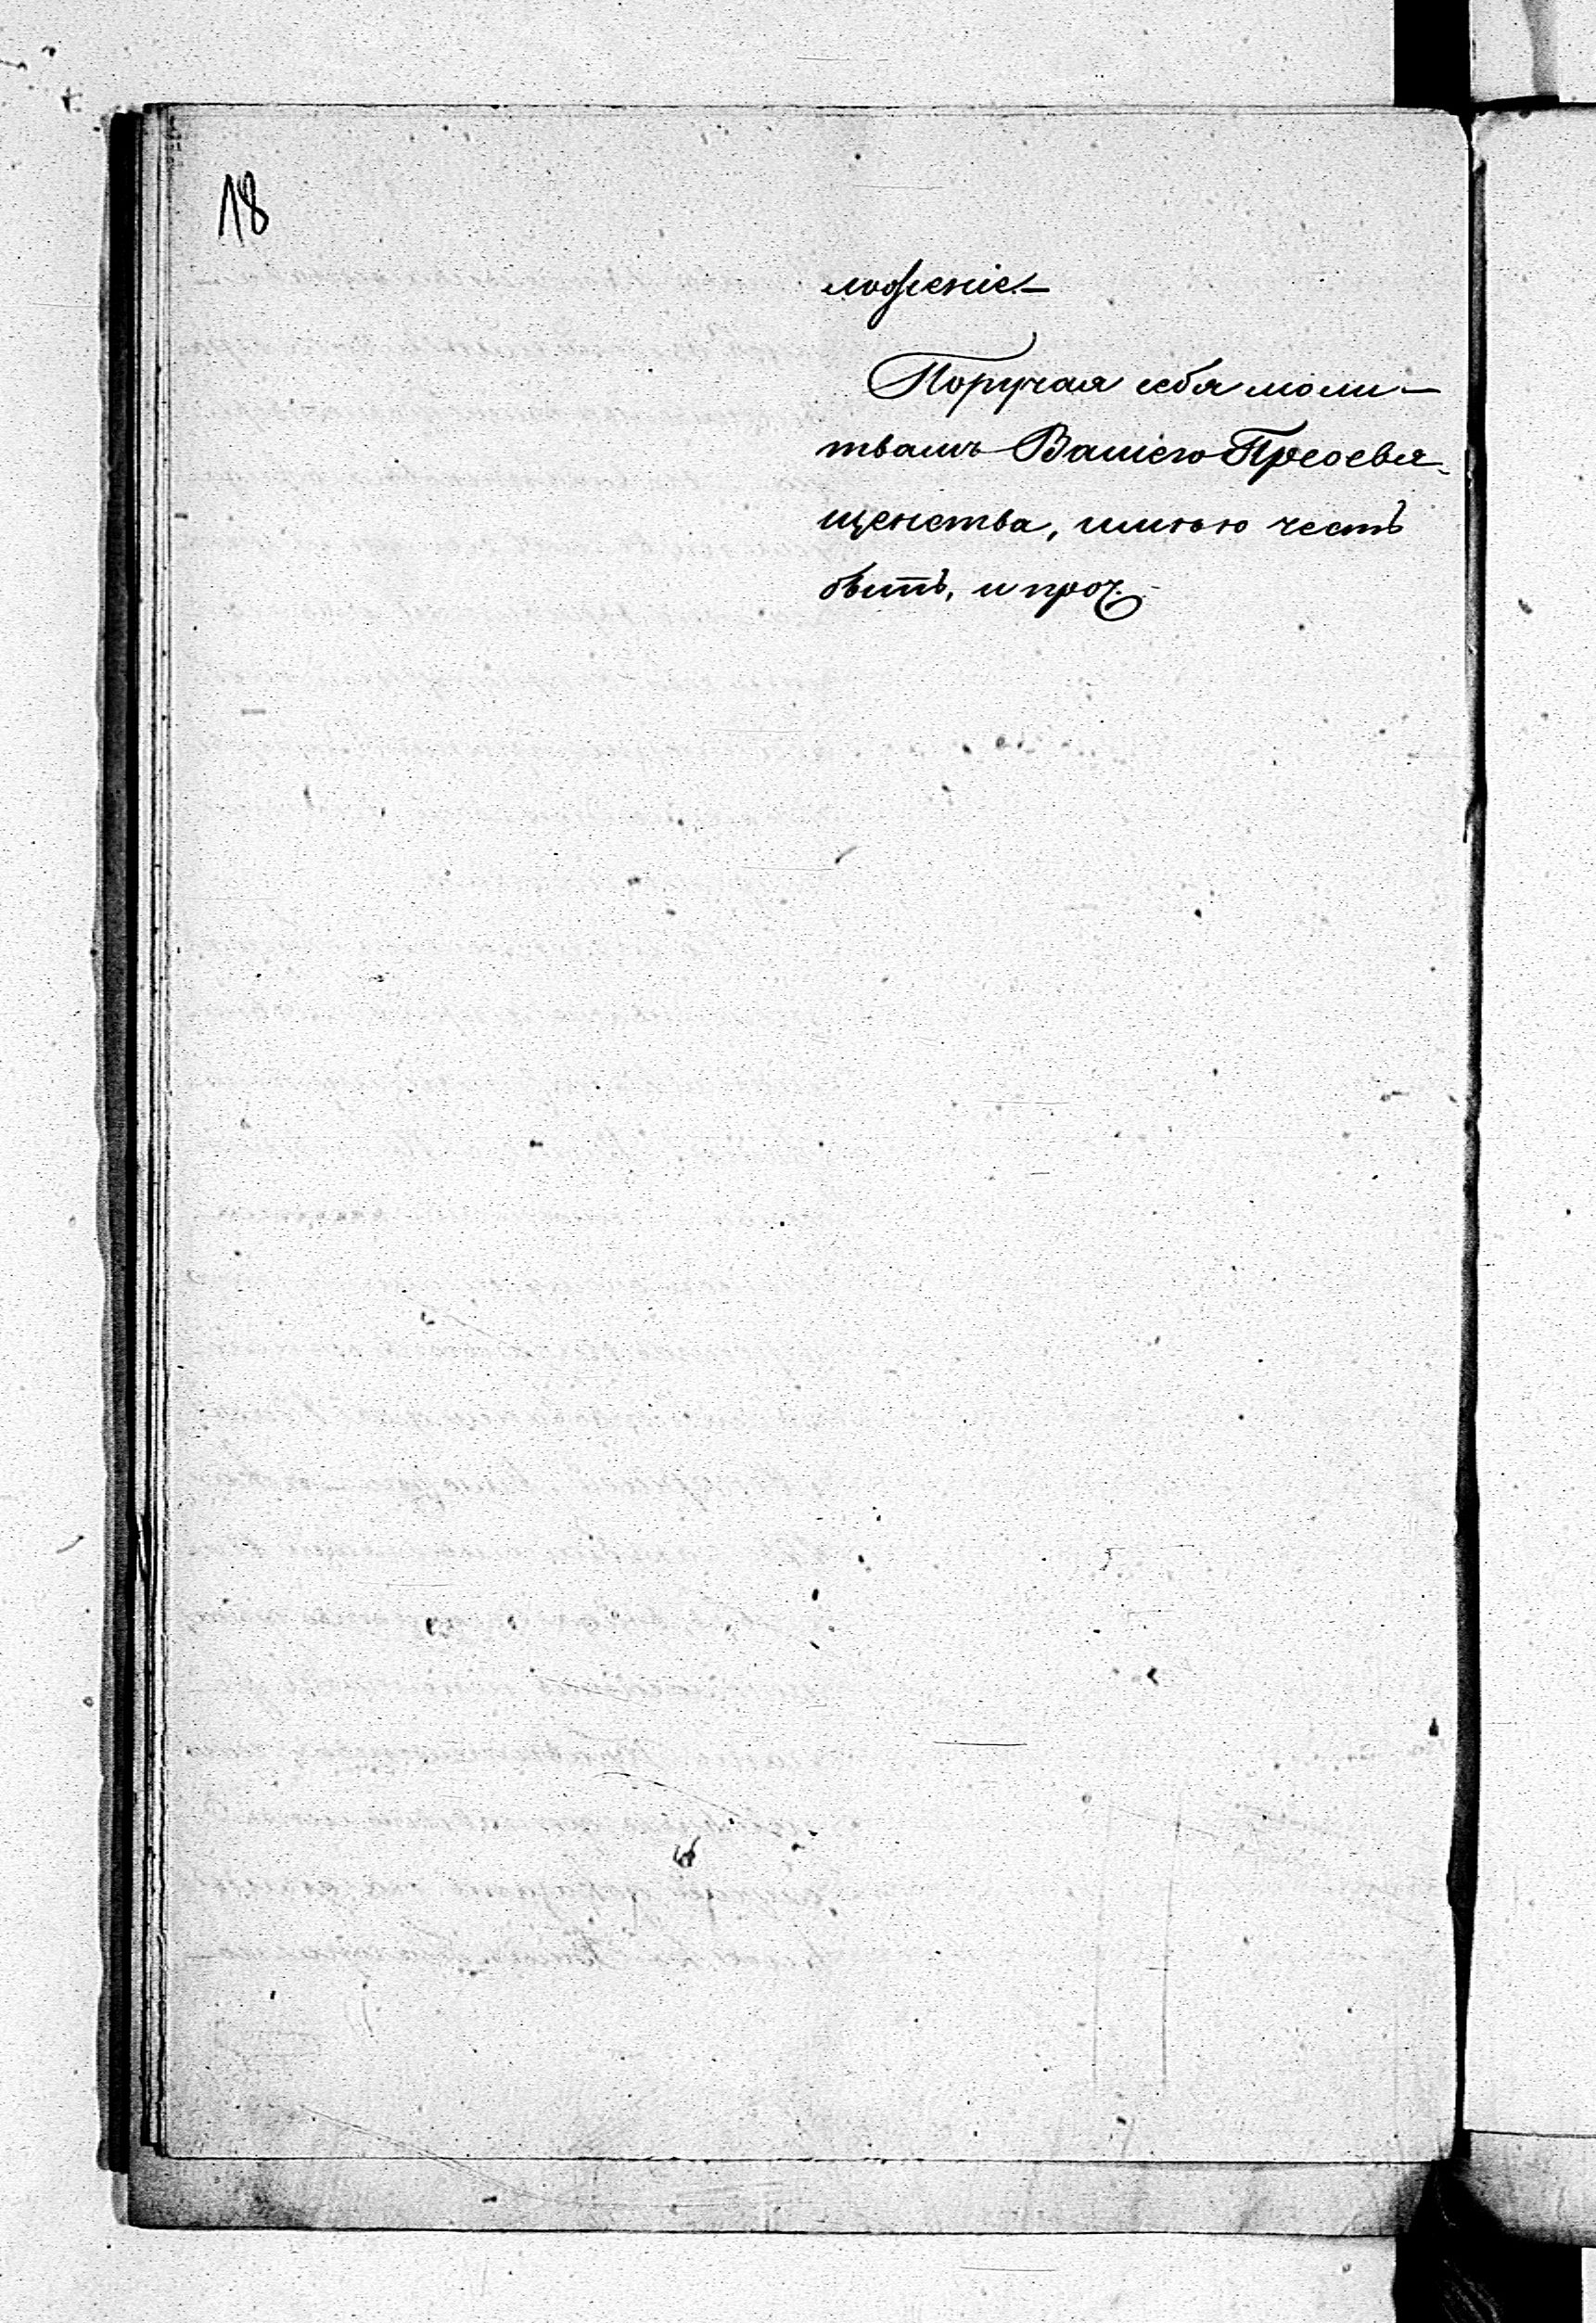 18
ложеніе.—
Поручая себя моли—
твамъ Вашего Преосвя-
щенства, имѣю честь
быть, и проч.